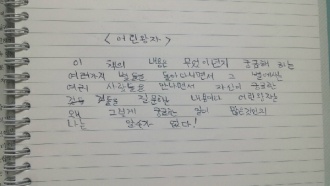 <어린왕자>
이 책의 내용은 무엇이든지 궁금해 하는
여러가지 별들을 돌아다니면서 그 별에사는
여러 사람들을 만나면서 자신이 궁금한
것들을 질문하는 내용이다 어린왕자는
왜 그렇게 궁금한 것이 많은것인지
나는 알수가 없다!